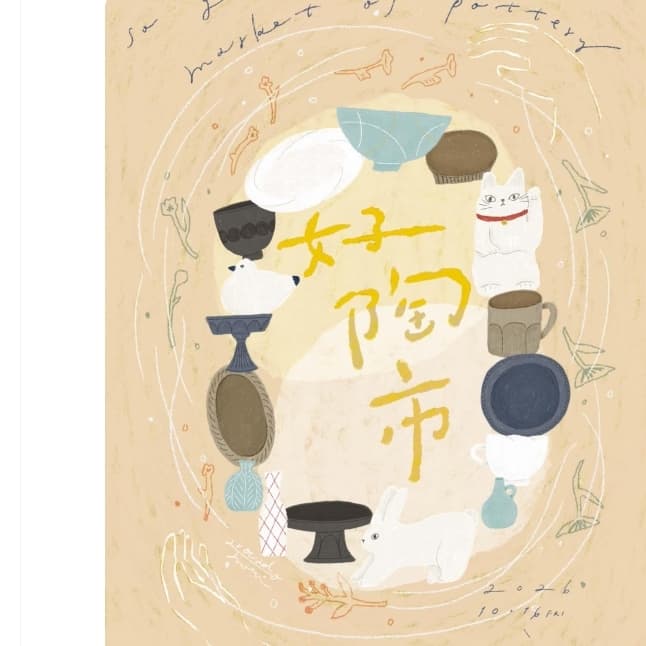 so g
market of pottery
好
陶
市
2026
10.16 FRI